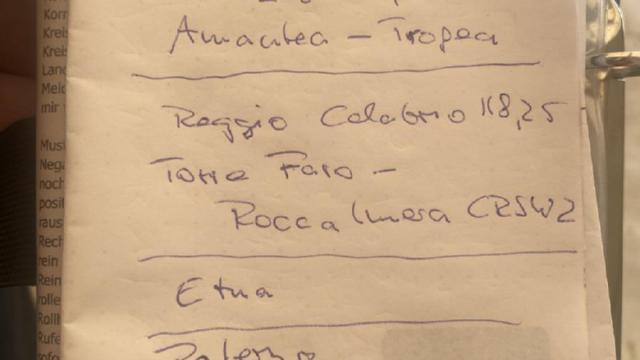 Amantea - Tropea
Reggio Calabrio 118,25
Torre Faro -
Roccalmera CRSW2
Etna
Palermo
Korr
Kreis
Kreis
Land
Meld
mir
Must
Nega
noch
posit
raus
Rech
rein
Rein
rolle
Rolll
Rufe